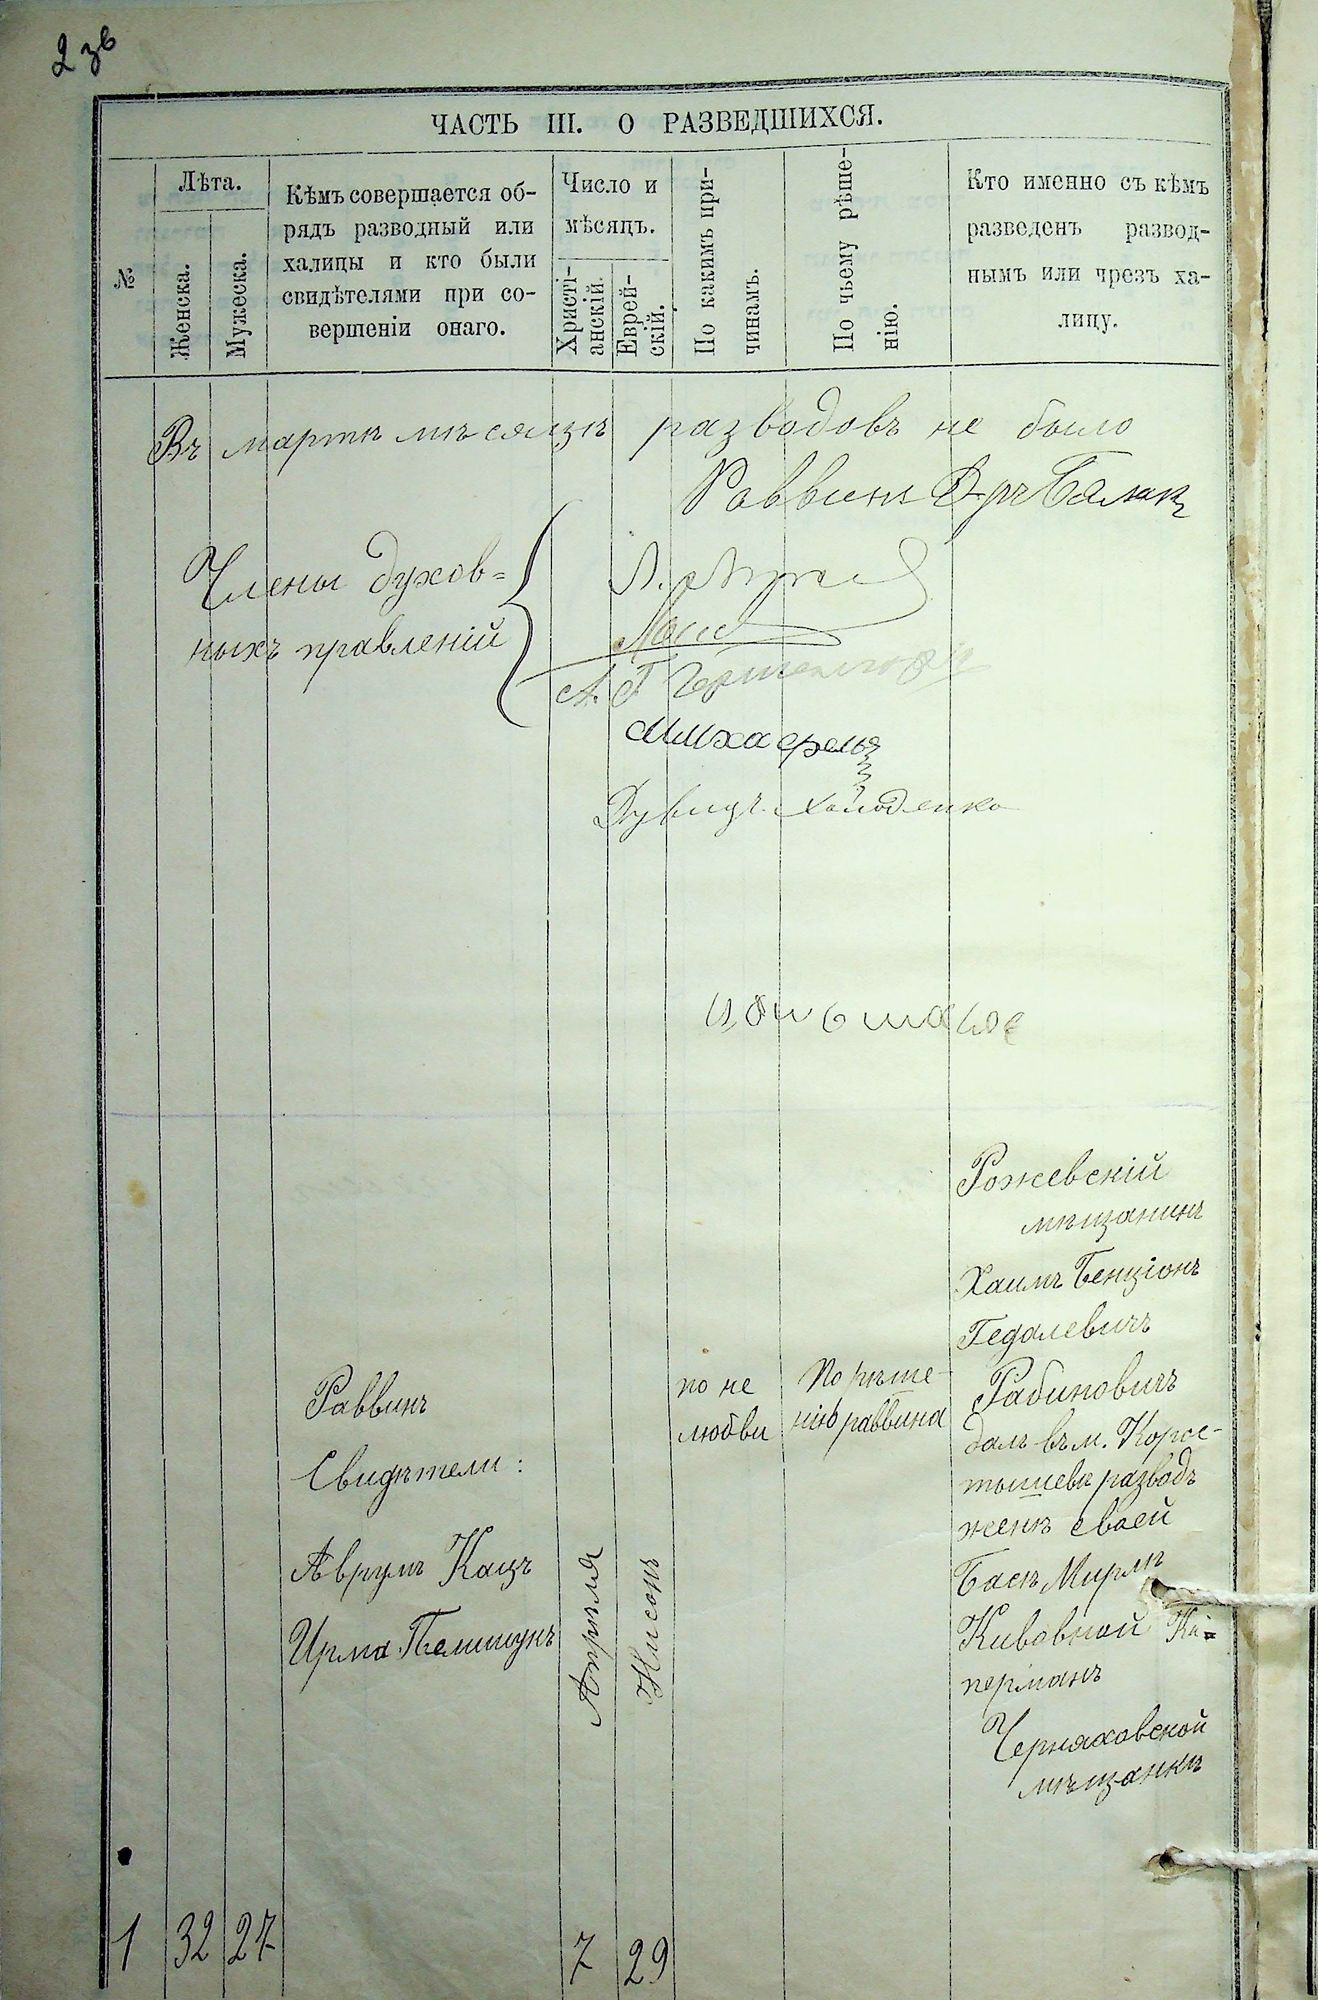 2 зв
ЧАСТЬ III. О РАЗВЕДШИХСЯ.
№
Лѣта.
Женска.
Мужеска.
Кѣмъ совершается об-
рядъ разводный или
халицы и кто были
свидѣтелями при со-
вершеніи онаго.
Число и
мѣсяцъ.
Христі-
анскій.
Еврей-
скій.
По какимъ при-
чинамъ.
По чьему рѣше-
нію.
Кто именно съ кѣмъ
разведенъ развод-
нымъ или чрезъ ха-
лицу.
Въ мартѣ мѣсяцѣ разводовъ не было
Раввинъ Д-ръ
Члены духов-
ныхъ правленій
А. Г.
Дувидъ Холоденко
1
32
27
Раввинъ
Свидѣтели:
Аврумъ Кацъ
7
Апрѣля
29
Нисонъ
по не
любви
По рѣше-
нію раввина
Рожевскій
мѣщанинъ
Хаимъ Бенціонъ
Гедалевичъ
Рабиновичъ
далъ въ м. Корос-
тышевѣ разводъ
женѣ своей
Басѣ Мирлѣ
Кивовной Ки-
перманъ
Черняховской
мѣщанкѣ